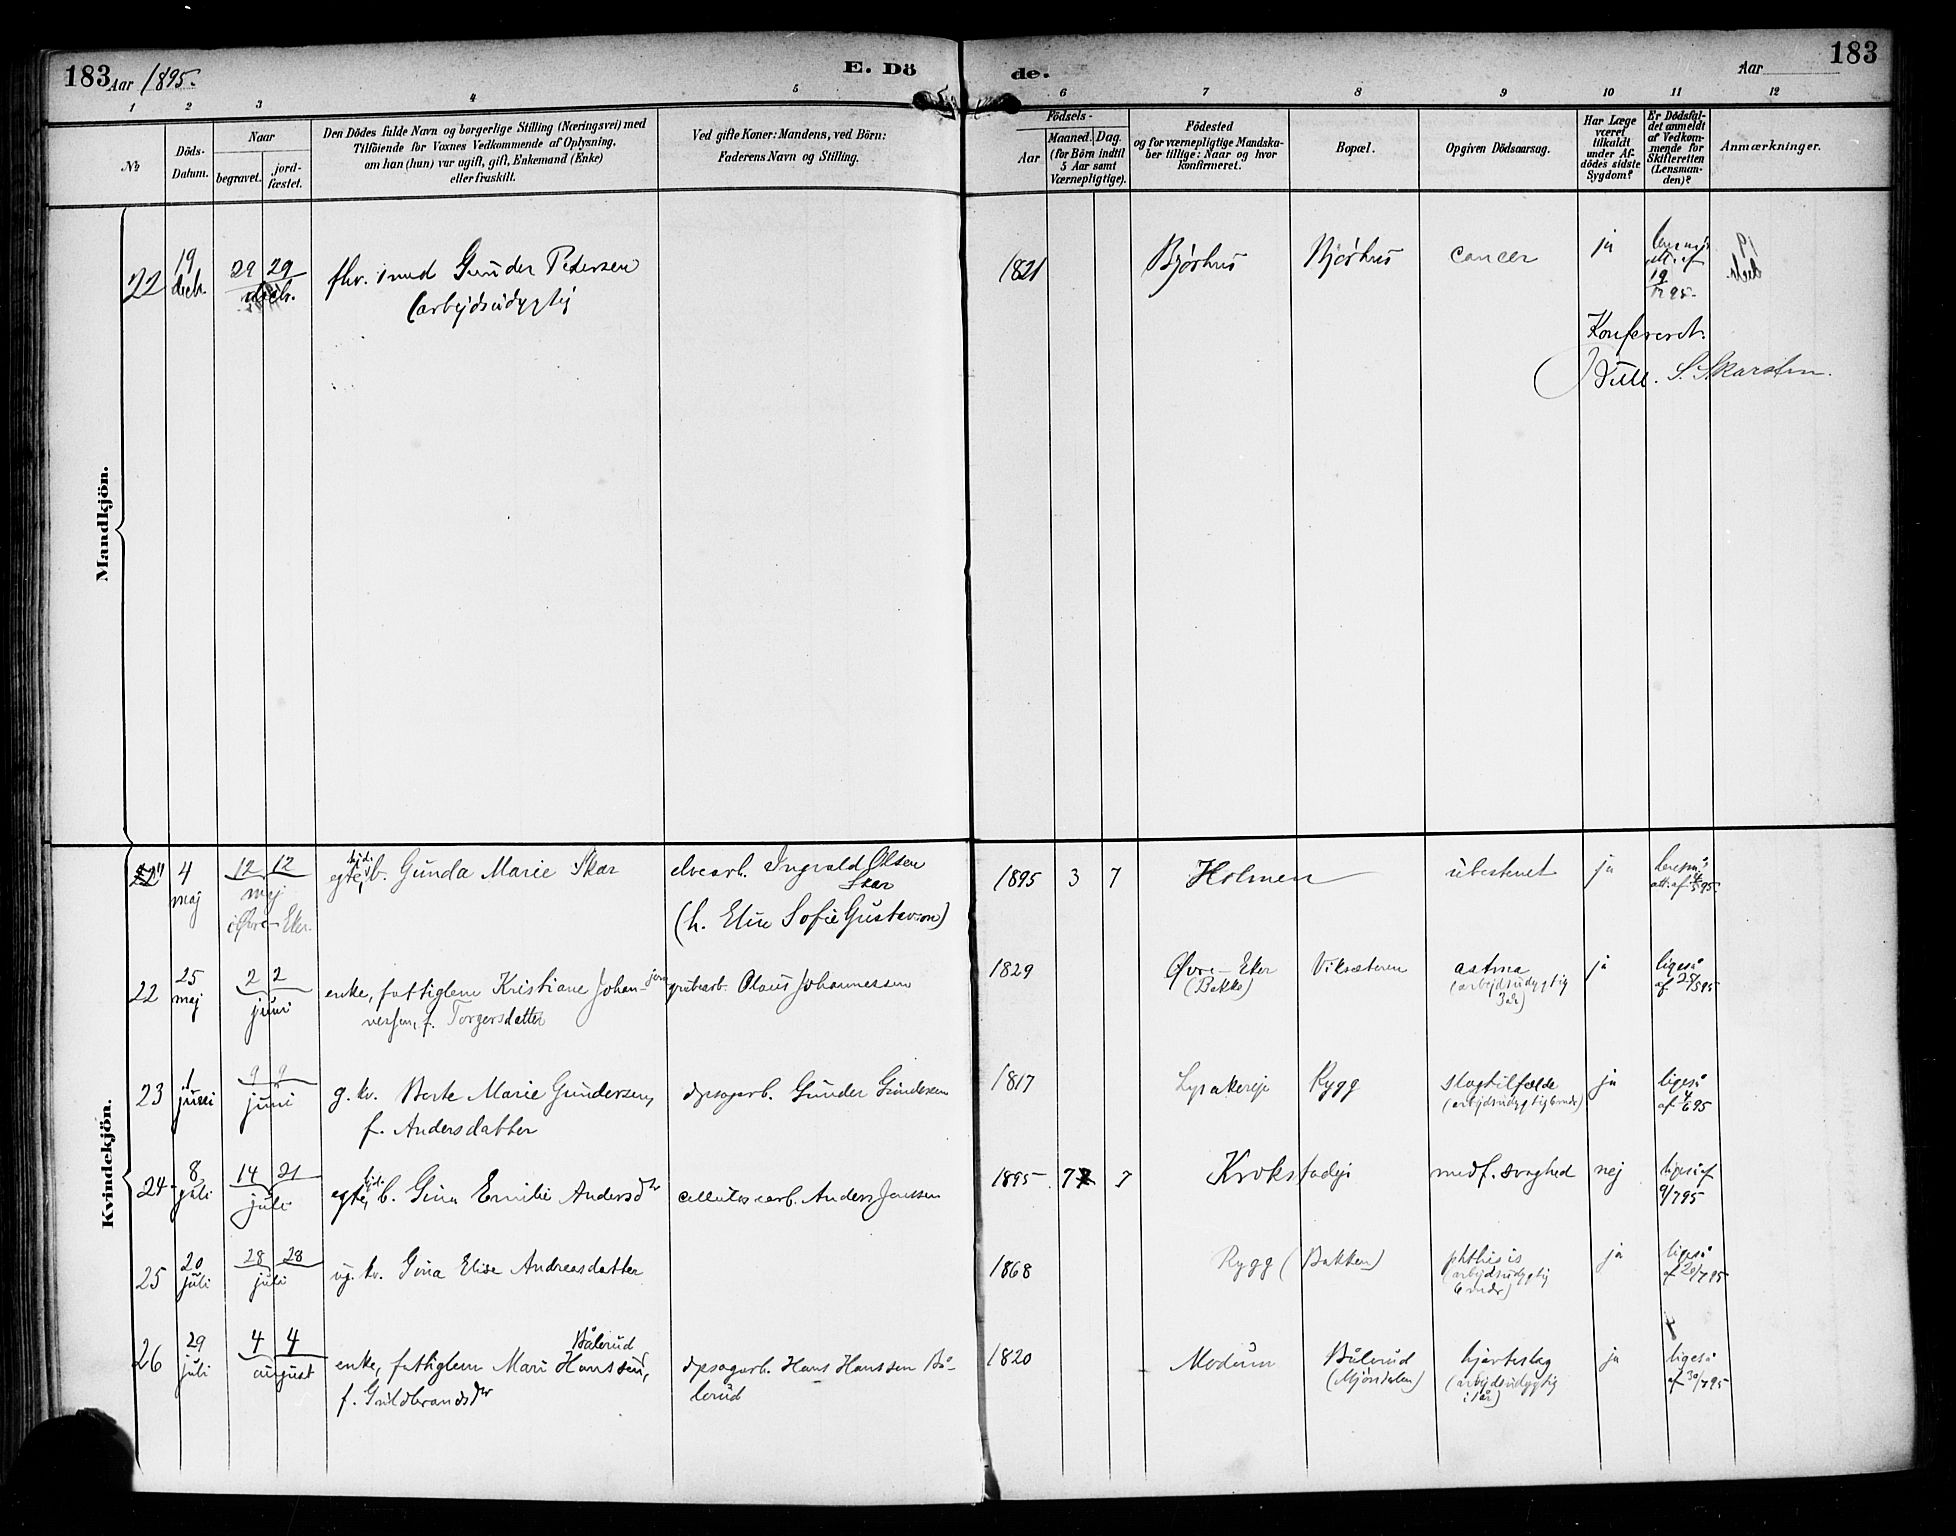 183 Aar 1895.
E. Dö
de.
Aar
183
1 2 3 4 5 6 7 8 9 10 11 12
No
Döds-
Datum.
Naar
begravet.
jord-
fæstet.
Den Dödes fulde Navn og borgerlige Stilling (Næringsvei) med
Tilföiende for Voxnes Vedkommende af Oplysning,
om han (hun) var ugift, gift, Enkemand (Enke)
eller fraskilt.
Ved gifte Koner: Mandens, ved Börn:
Faderens Navn og Stilling.
Födsels-
Aar
Maaned. Dag.
(for Börn indtil
5 Aar samt
Værnepligtige).
Födested
og for værnepligtige Mandska-
ber tillige: Naar og hvor
konfirmeret.
Bopæl.
Opgiven Dödsaarsag.
Har Læge
været
tilkaldt
under Af-
dödes sidste
Sygdom?
Er Dödsfal-
det anmeldt
af Vedkom-
mende for
Skifteretten
(Lensman-
den)?
Anmærkninger.
Mandkjön.
22 19 decb. 29 29 decb. fhv. smed Gunder Pedersen
(arbejdsudygtig
1821 Bjørhus Bjørhus cancer ja
att. af
19
12 95.
Konfereret.
S. Skarsten.
Kvindekjön.
4 maj 12 12 maj
i Øvre-Eker.
egte b. Gunda Marie Skar
elvearb. Ingvald Olsen
Skar
(h. Elise Sofie Gustavson)
1895 3 7 Holmen ubestemt ja
att. af 4/5 95.
22 25 maj 2 2 juni
enke, fattiglem Kristiane Johan-
nessen, f. Torgersdatter
grubearb. Olaus Johannessen
1829 Øvre-Eker
(Bakke)
Viksæteren
astma
(arbejdsudygtig
3 år)
ja
ligeså
af 25/5 95
23 1 juni 9 9 juni
g. kv. Berte Marie Gundersen,
f. Andersdatter
dpsagarb. Gunder Gundersen
1817 Lysakereje Rygg
slagtilfælde
ja
ligeså
af 4/6 95
24 8 juli 14 21 juli
egte b. Gina Emilie Andersdtr
cellulosearb. Anders Jenssen
1895 7 7 Krokstadeje medf. svaghed nej
ligeså af
9/7 95
25 20 juli 28 28 juli
ug. kv. Gina Elise Andreasdatter
1868 Rygg (Bakken)
phthisis
(arbejdsudygtig
6 mdr)
ja
ligeså
af 20/7 95
26 29 juli 4 4 august
Bålerud
enke, fattiglem Mari Hanssen,
f. Guldbrandsdtr
dpsagarb. Hans Hanssen Bå-
lerud
1820 Modum Bålerud
(Mjøndalen)
hjerteslag
(arbejdsudygtig
1 år)
ja
ligeså
af 30/7 95